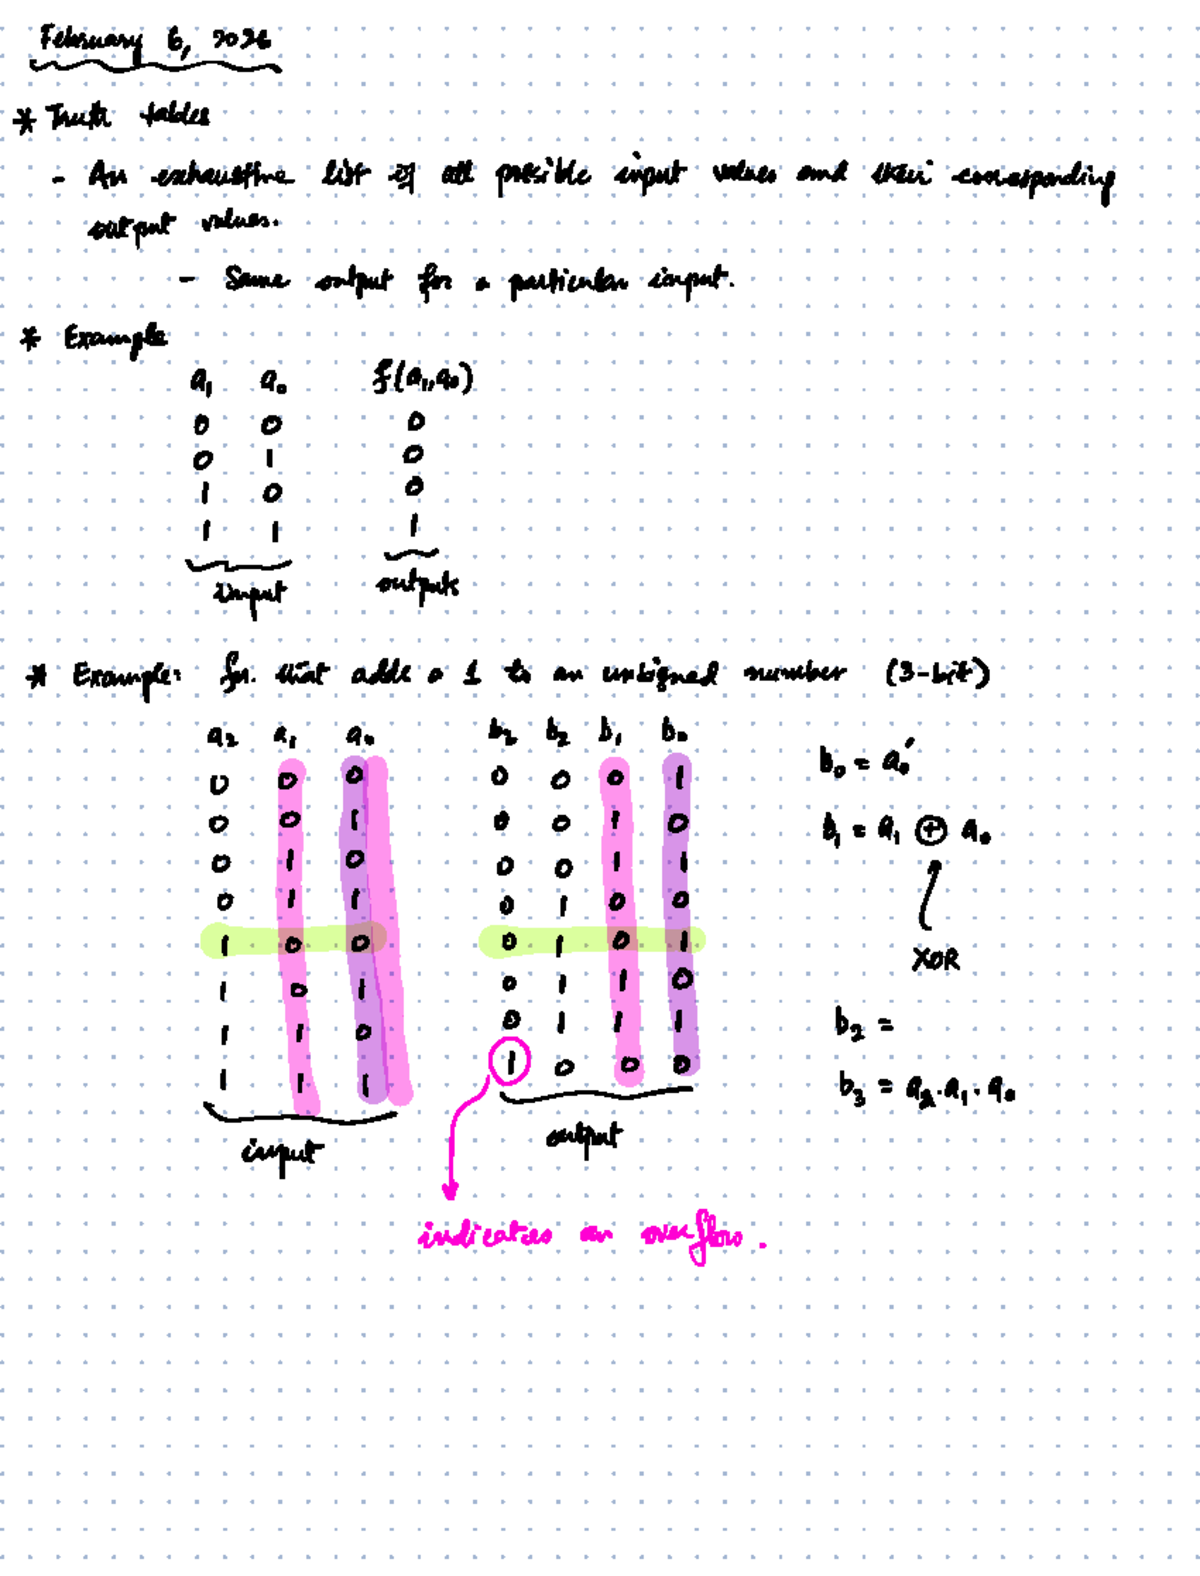 February 6, 2026
* Truth tables
- An exhaustive list of all possible input values and their corresponding
output values.
- Same output for a particular input.
* Example
a₁ a₀ f(a₁,a₀)
0 0 0
0 1 0
1 0 0
1 1 1
Input outputs
* Example: fn. that adds a 1 to an unsigned number (3-bit)
a₂ a₁ a₀ b₃ b₂ b₁ b₀
0 0 0 0 0 0 1
0 0 1 0 0 1 0
0 1 0 0 0 1 1
0 1 1 0 1 0 0
1 0 0 0 1 0 1
1 0 1 0 1 1 0
1 1 0 0 1 1 1
1 1 1 1 0 0 0
input output
b₀ = a₀′
b₁ = a₁ ⊕ a₀
XOR
b₂ =
b₃ = a₂.a₁.a₀
indicates an overflow.